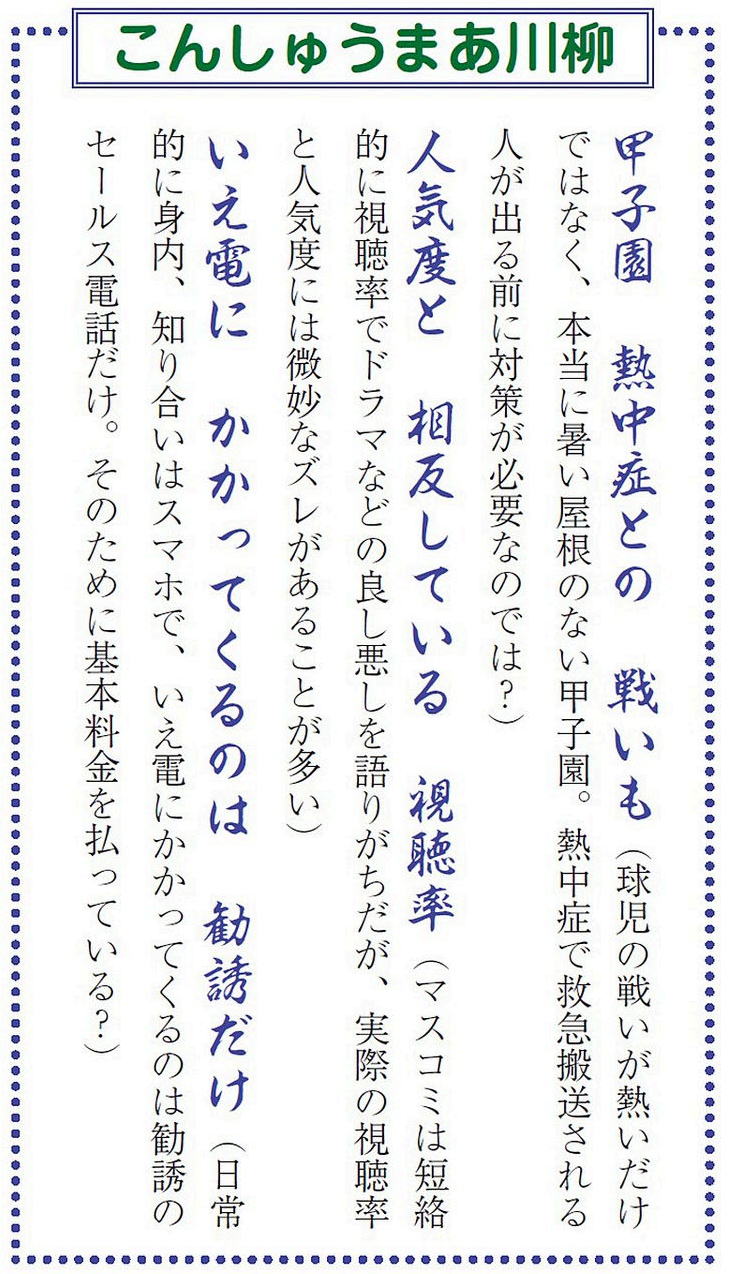 こんしゅうまあ川柳
甲子園　熱中症との　戦いも（球児の戦いが熱いだけ
ではなく、本当に暑い屋根のない甲子園。熱中症で救急搬送される
人が出る前に対策が必要なのでは？）
人気度と　相反している　視聴率（マスコミは短絡
的に視聴率でドラマなどの良し悪しを語りがちだが、実際の視聴率
と人気度には微妙なズレがあることが多い）
いえ電に　かかってくるのは　勧誘だけ（日常
的に身内、知り合いはスマホで、いえ電にかかってくるのは勧誘の
セールス電話だけ。そのために基本料金を払っている？）